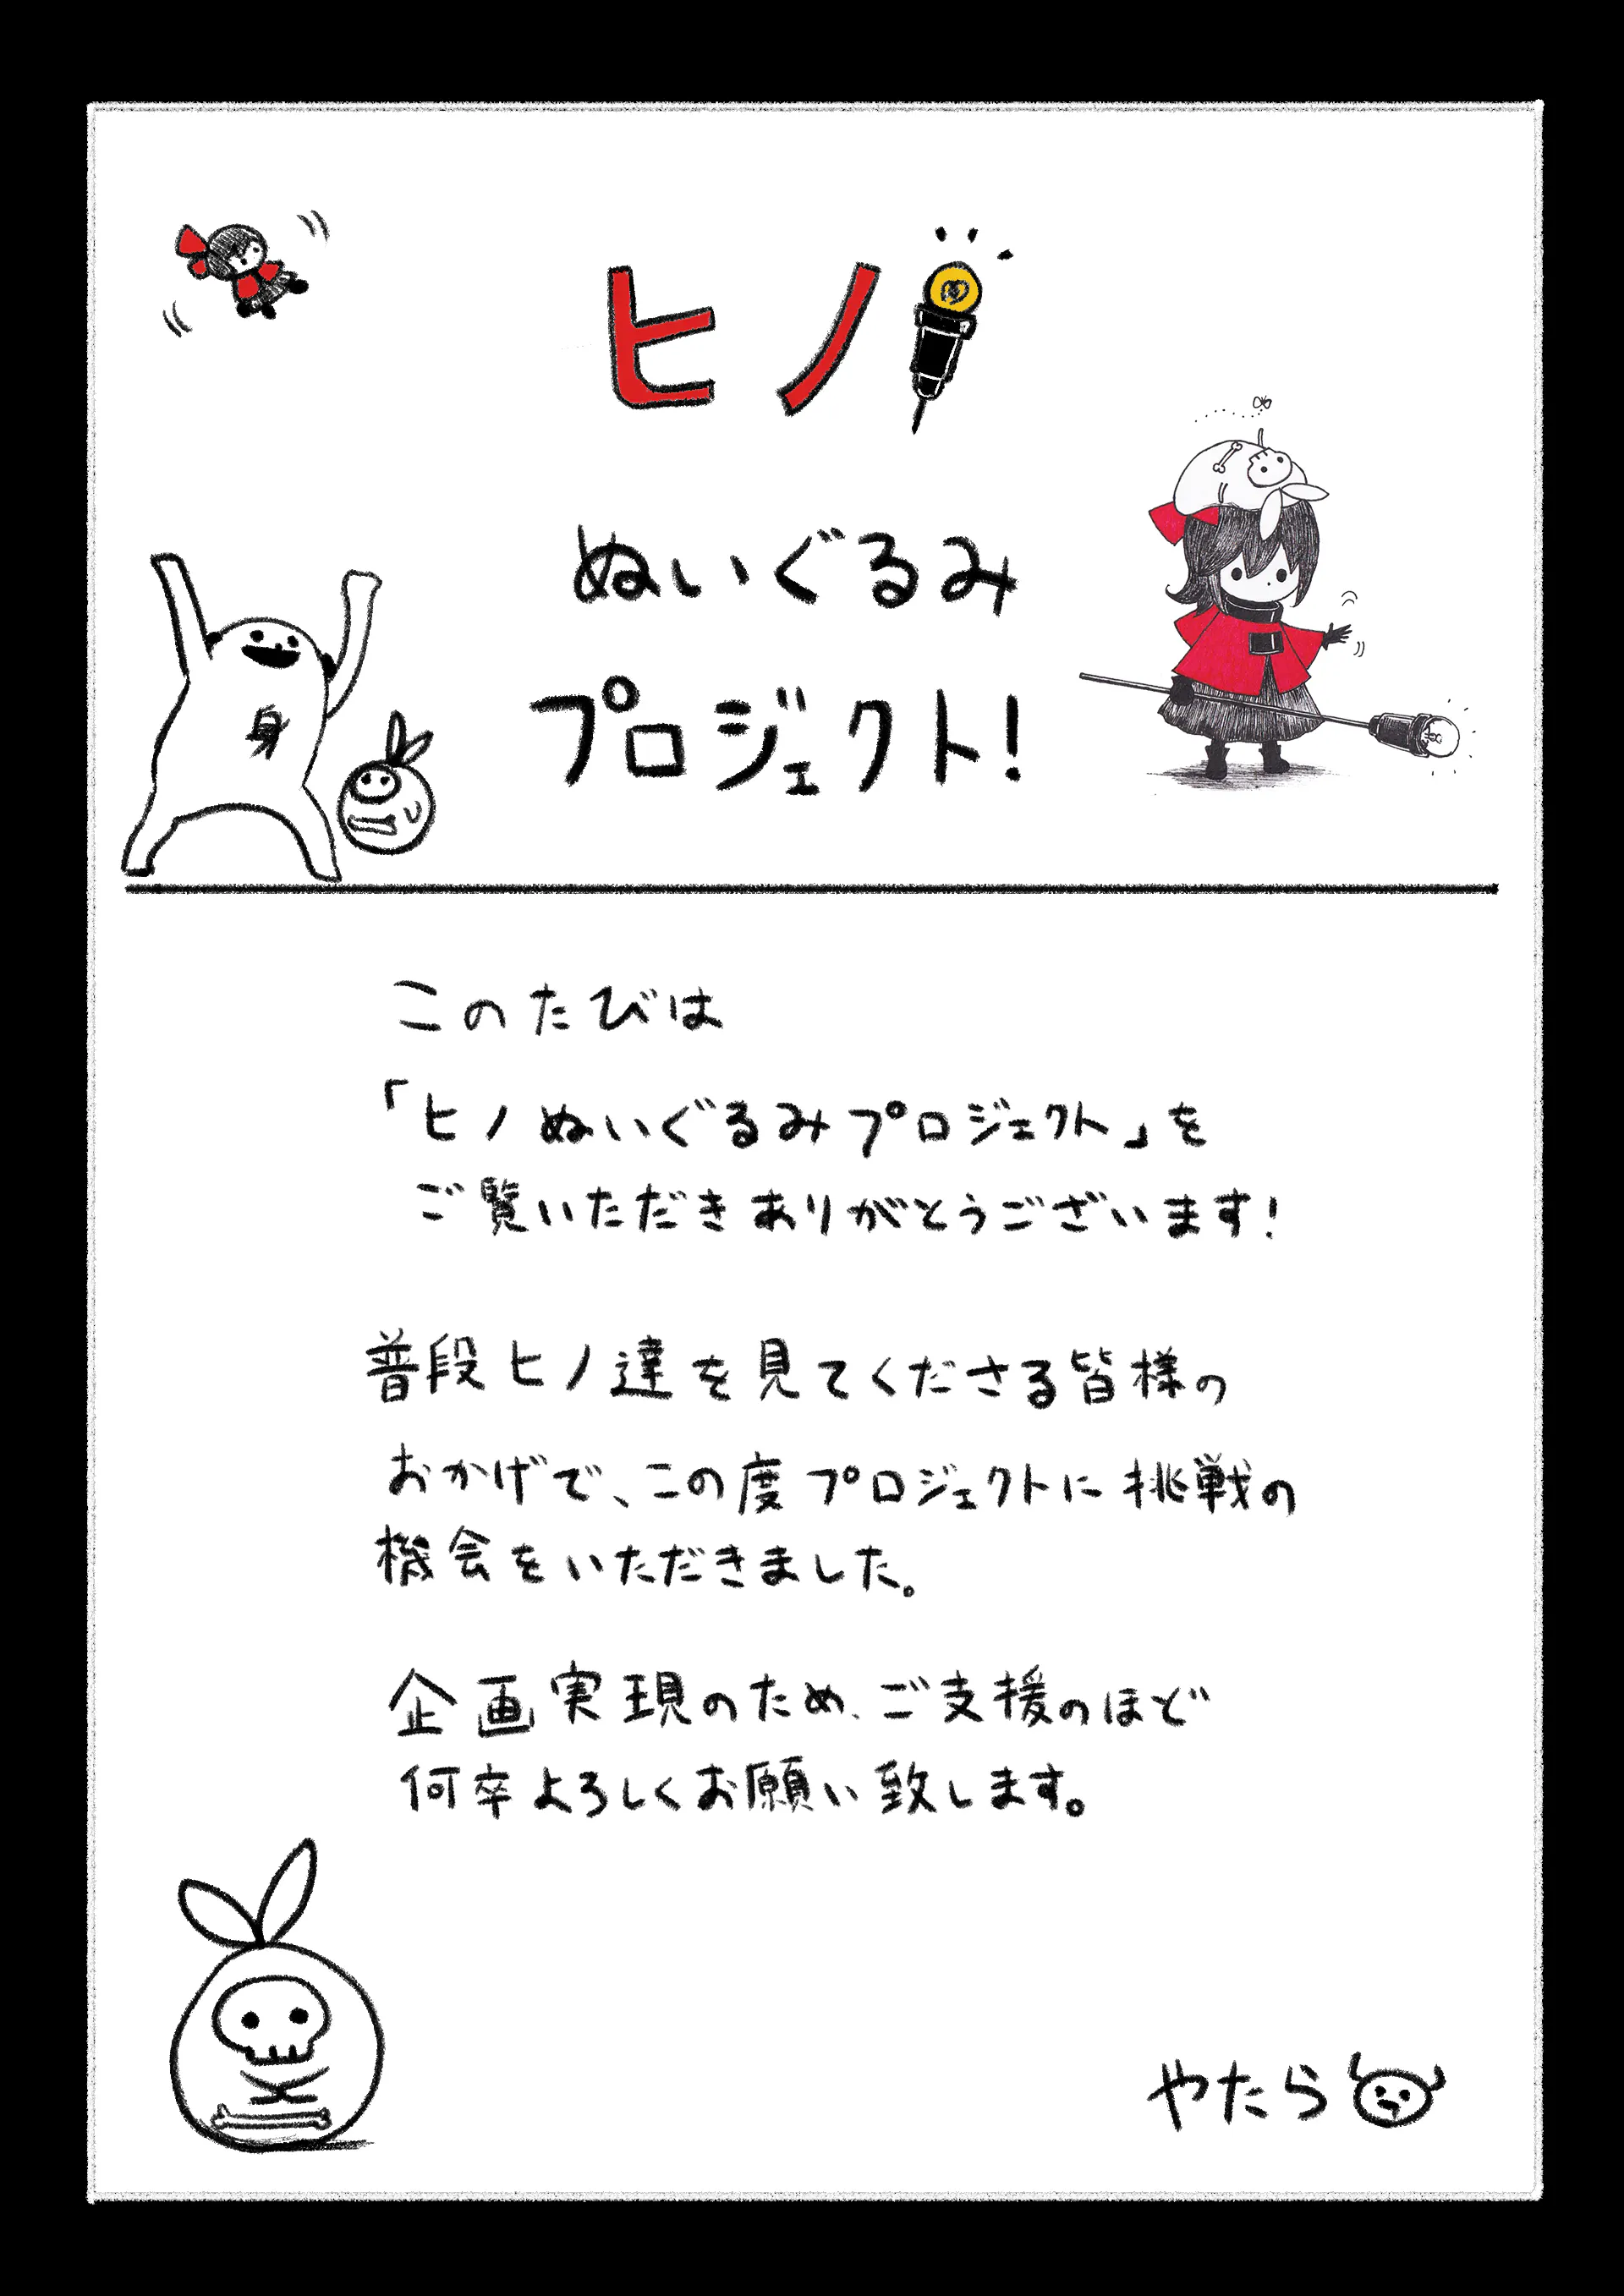 ヒノ
ぬいぐるみ
プロジェクト!
身
このたびは
「ヒノぬいぐるみプロジェクト」を
ご覧いただきありがとうございます!
普段ヒノ達を見てくださる皆様の
おかげで、この度プロジェクトに挑戦の
機会をいただきました。
企画実現のため、ご支援のほど
何卒よろしくお願い致します。
やたら